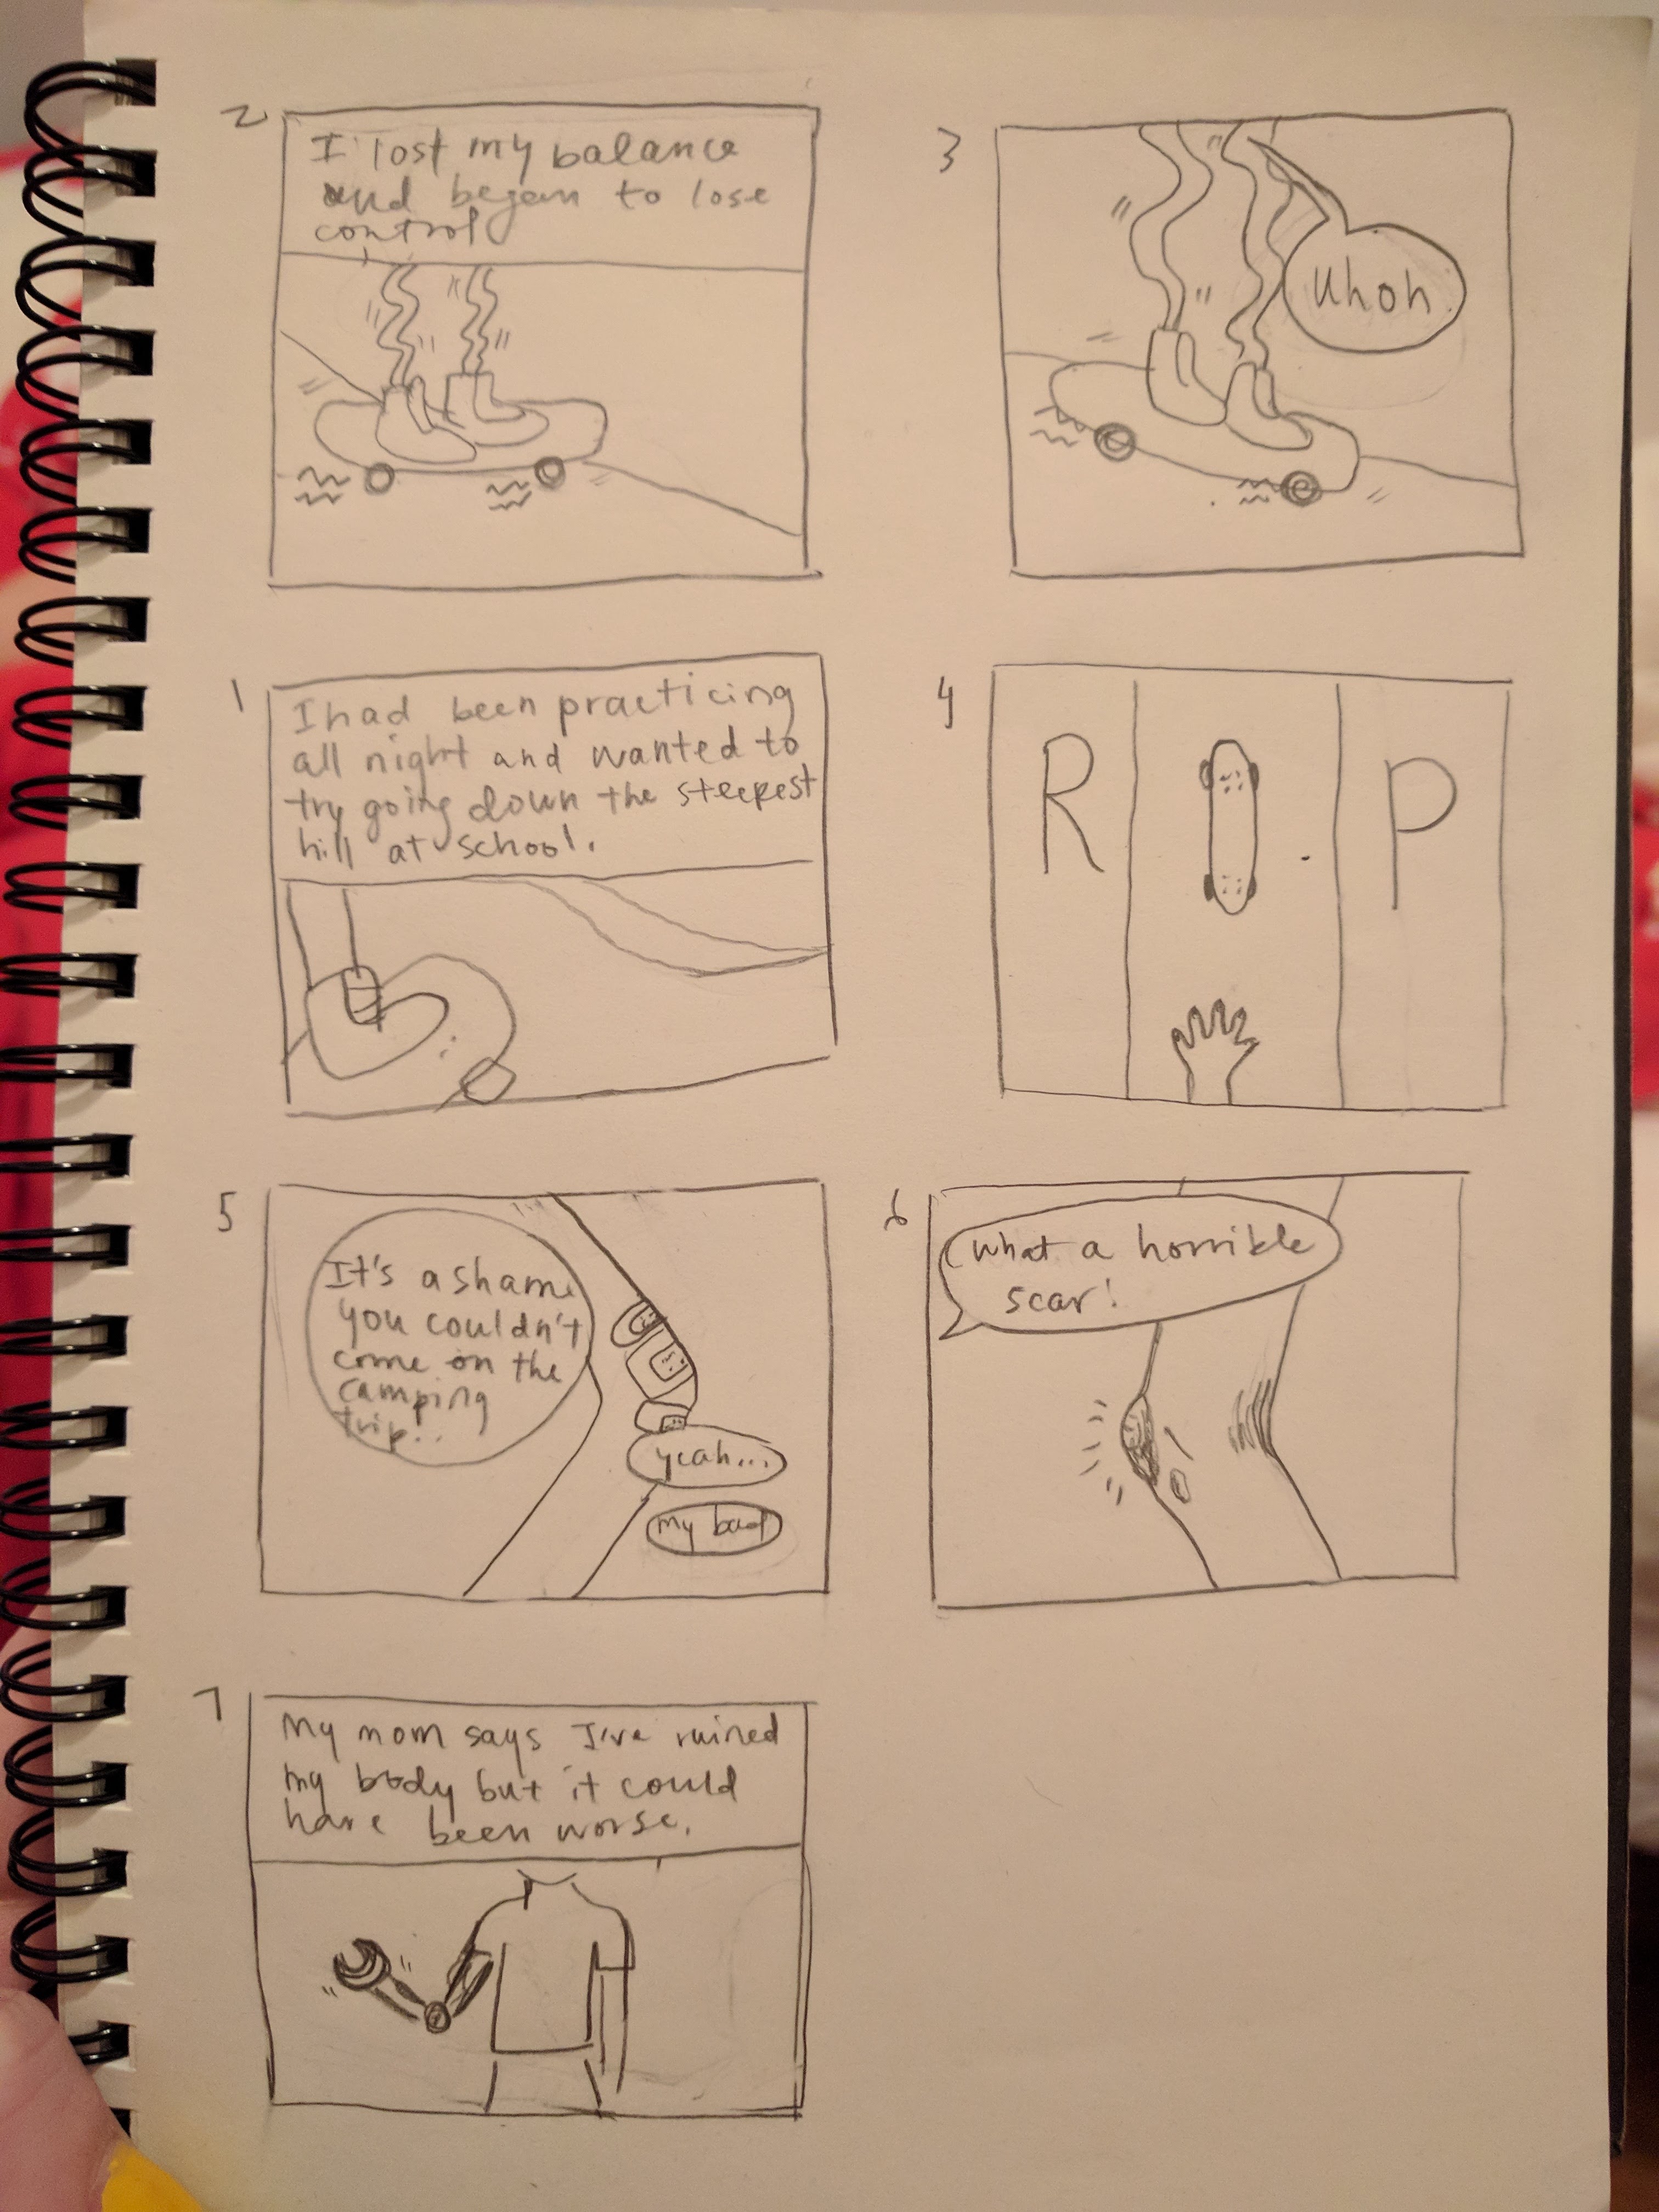 2
I lost my balance
and began to lose
control
3
Uhoh
1
I had been practicing
all night and wanted to
try going down the steepest
hill at school.
4
R I P
5
It's a shame
you couldn't
come on the
camping
trip..
yeah...
my bad
6
What a horrible
scar!
7
My mom says I've ruined
my body but it could
have been worse.